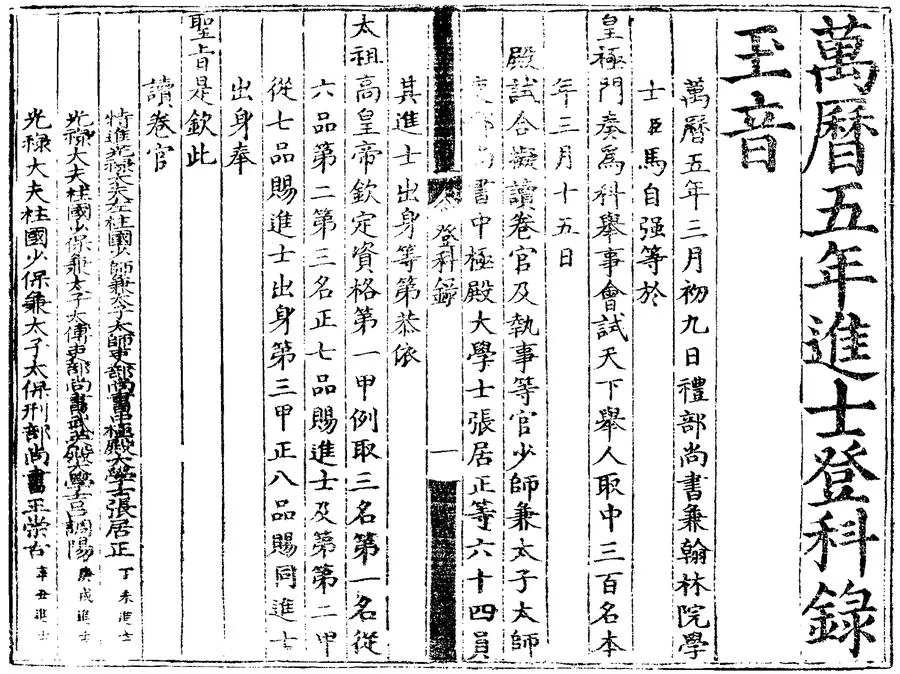 萬曆五年進士登科錄
玉音
萬曆五年三月初九日禮部尚書兼翰林院學
士臣馬自强等於
皇極門奏爲科舉事會試天下舉人取中三百名本
年三月十五日
殿試合擬讀卷官及執事等官少師兼太子太師
吏部尚書中極殿大學士張居正等六十四員
其進士出身等第恭依
登科錄
一
太祖高皇帝欽定資格第一甲例取三名第一名從
六品第二第三名正七品賜進士及第第二甲
從七品賜進士出身第三甲正八品賜同進士
出身奉
聖旨是欽此
讀卷官
特進光祿大夫左柱國少師兼太子太師吏部尚書中極殿大學士張居正 丁未進士
光祿大夫柱國少保兼太子太傅吏部尚書武英殿大學士呂調陽 庚戌進士
光祿大夫柱國少保兼太子太保刑部尚書王崇古 辛丑進士